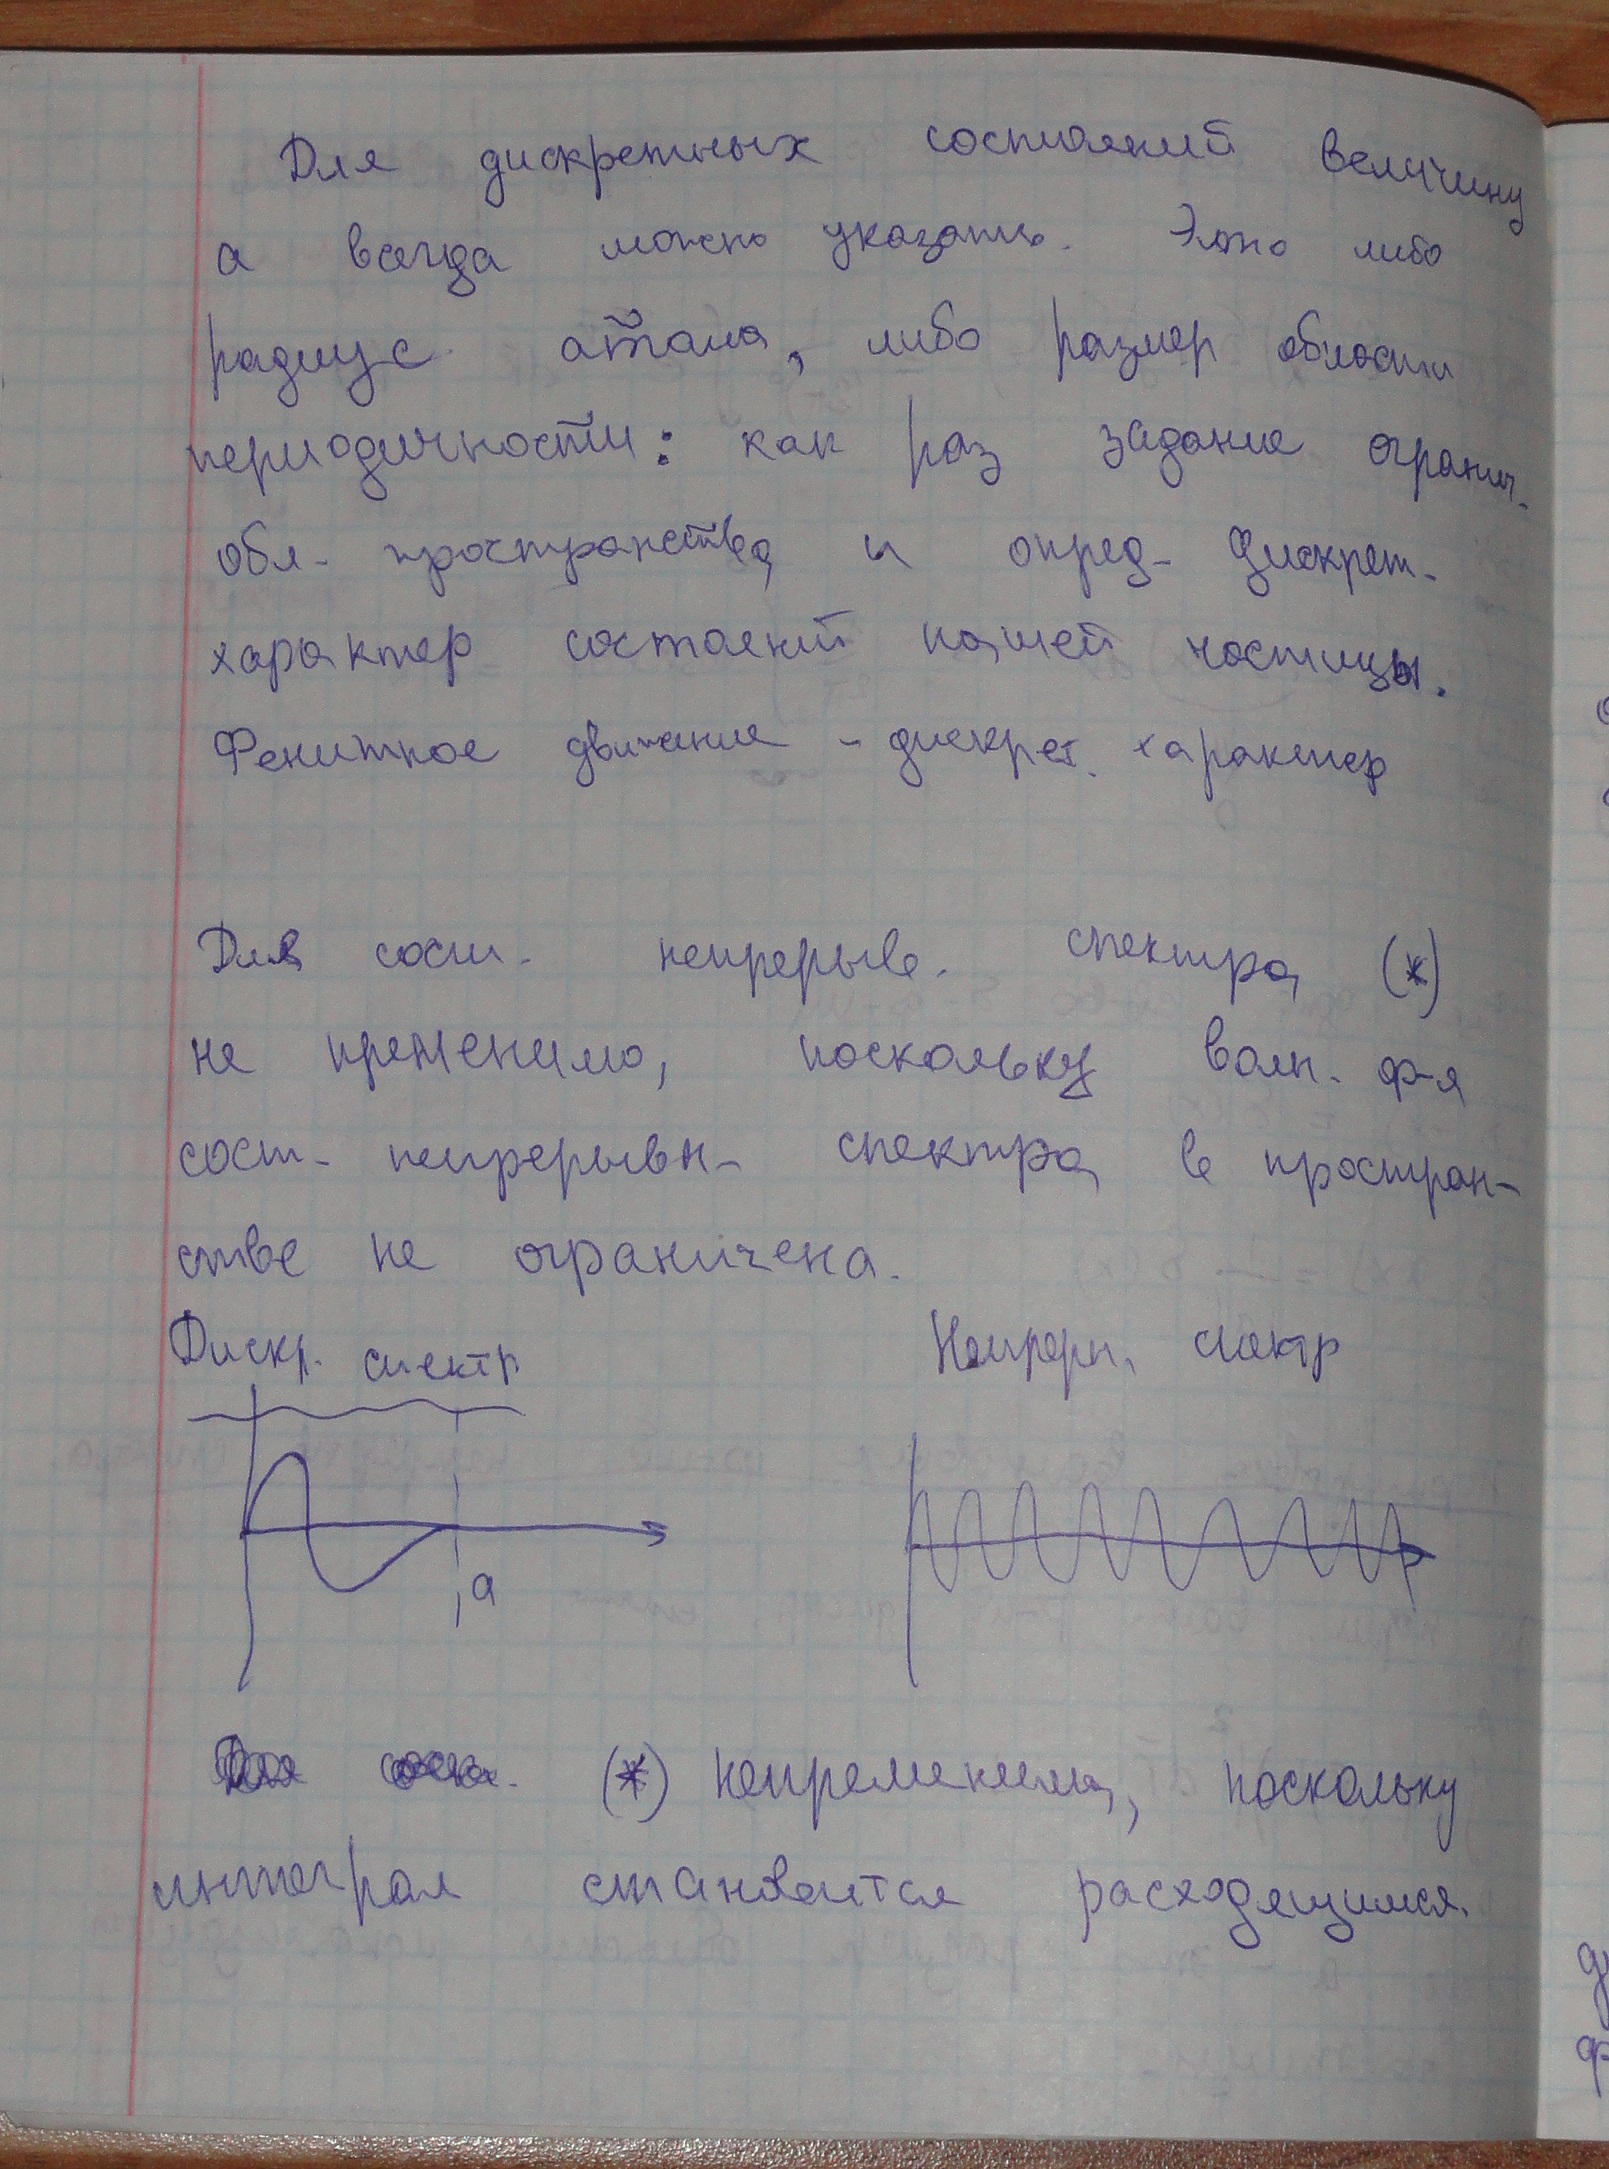 Для дискретных состояний величину
а всегда можно указать. Это либо
радиус атома, либо размер области
периодичности: как раз задание огранич.
обл. пространства и опред. дискрет.
характер состояний нашей частицы.
Фенитное движение - дискрет. характер
Для сост. непрерывв. спектра (*)
не пременимо, поскольку волн. ф-я
сост. непрерывн. спектра в простран-
стве не ограничена.
Дискр. спектр
Непреры. спектр
а
(*) непременима, поскольку
интеграл становится расходящимся.